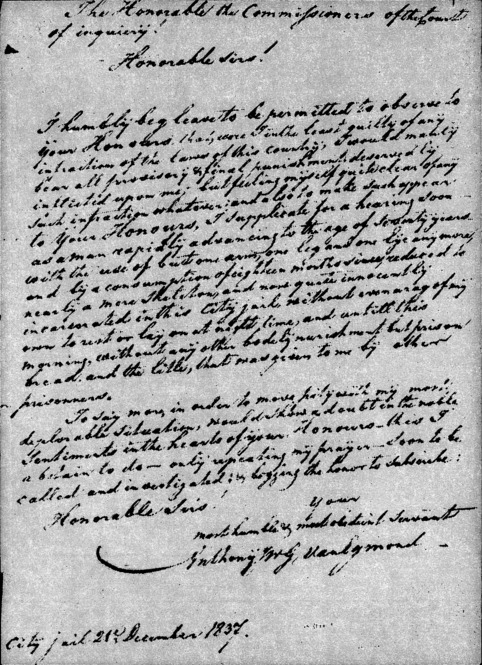 The Honorable the Commissioners of the Court
of inquiery!
Honorable Sirs!
I humbly beg leave to be permitted to observe to
your Honours, that, were I in the least guilty of any
infraction of the laws of this country, I would manly
bear all provisory & final punishment deservedly
inflicted upon me; but feeling myself quite clear of any
such infraction whatever and also to make such appear
to Your Honours, I supplicate for a hearing soon
as a man rapidly advancing to the age of seventy years
with the use of but one arm, one leg and one eye any more,
and by a consumption of eighteen months since, reduced to
nearly a mere skeleton, and now quite innocently
incarcerated in this City jail, without even a rag of my
own to rest or lay on at night time, and untill this
morning, without any other bodely nurishment but prison
bread and the little, that was given to me by other
prisonners.
To say more, in order to move pity with my most
deplorable situation, would show a doubt in the noble
Sentiments in the hearts of your Honours – this I
abstain to do – only repeating my prayer – soon to be
called and investigated; & begging the honor to subscribe:
Honorable Sirs!
Your
most humble & most obedient Servant
Anthony W. G. Van Egmond
City jail 21st December 1837.